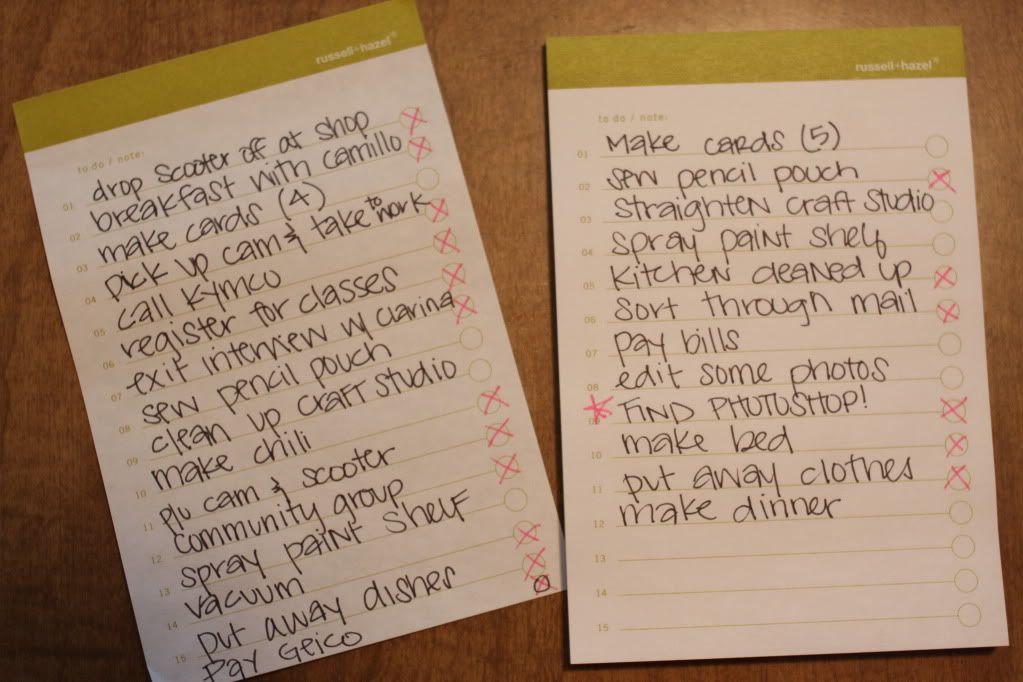 russell+hazel®
to do / note:
01 drop scooter off at shop
02 breakfast with camillo
03 make cards (4)
04 pick up cam & take to work
05 call kymco
06 register for classes
07 exit interview w/ clarina
08 sew pencil pouch
09 clean up craft studio
10 make chili
11 p/u cam & scooter
12 community group
13 spray paint shelf
14 vacuum
15 put away dishes
Pay Geico
russell+hazel®
to do / note:
01 Make cards (5)
02 sew pencil pouch
03 straighten craft studio
04 spray paint shelf
05 kitchen cleaned up
06 sort through mail
07 pay bills
08 edit some photos
09 FIND PHOTOSHOP!
10 make bed
11 put away clothes
12 make dinner
13
14
15